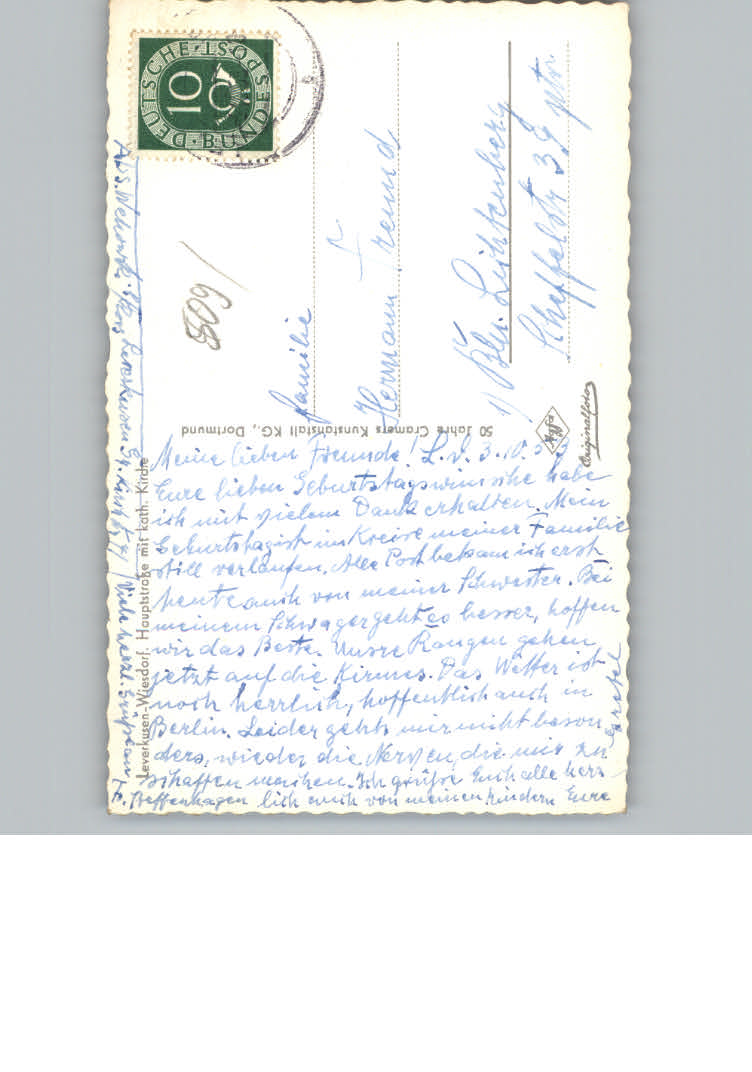 DEUTSCHE BUNDESPOST
10
509
Familie
Hermann Freund
1/ Bln. Lichtenberg
Scheffelstr 39 ptr.
50 Jahre Cramers Kunstanstalt KG., Dortmund
Agfa
Originalfoto
Leverkusen-Wiesdorf. Hauptstraße mit kath. Kirche
Meine lieben Freunde! L. d. 3.10.53
Eure lieben Geburtstagswünsche habe
ich mit vielem Dank erhalten. Mein
Geburtstag ist im Kreise meiner Familie
still verlaufen. Alle Post bekam ich erst
heute auch von meiner Schwester. Bei
meinem Schwager geht es besser, hoffen
wir das Beste. Unsre Rangen gehen
jetzt auf die Kirmes. Das Wetter ist
noch herrlich, hoffentlich auch in
Berlin. Leider gehts mir nicht beson
ders, wieder die Nerven, die mir zu
schaffen machen. Ich grüße Euch alle herz-
lich auch von meinen Kindern Eure
Gretel
Viele herzl. Grüße an
F. Steffenhagen